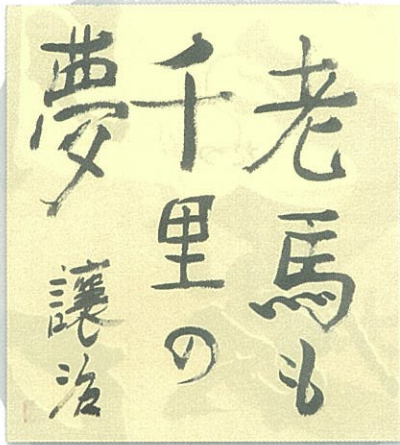 老馬も
千里の
夢
讓治